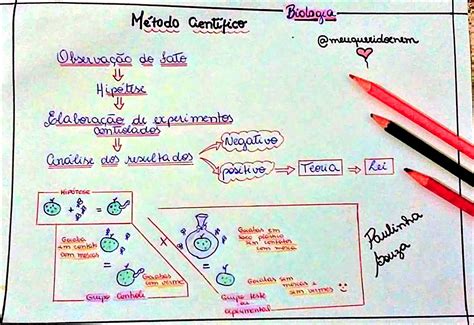 Método Científico
Biologia
@meuqueridoenem
Observação do fato
Hipótese
Elaboração de experimentos
controlados
Análise dos resultados
Negativo
positivo
Teoria
Lei
HIPÓTESE
Goiaba
em contato
com moscas
Goiabas
com vermes
Grupo Controle
Goiabas em
saco plástico
sem contato
com mosca
Goiabas sem
moscas e
sem vermes
Grupo teste
ou
experimental
Paulinha
Souza